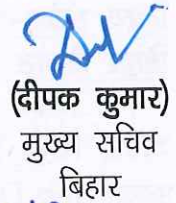 (दीपक कुमार)
मुख्य सचिव
बिहार